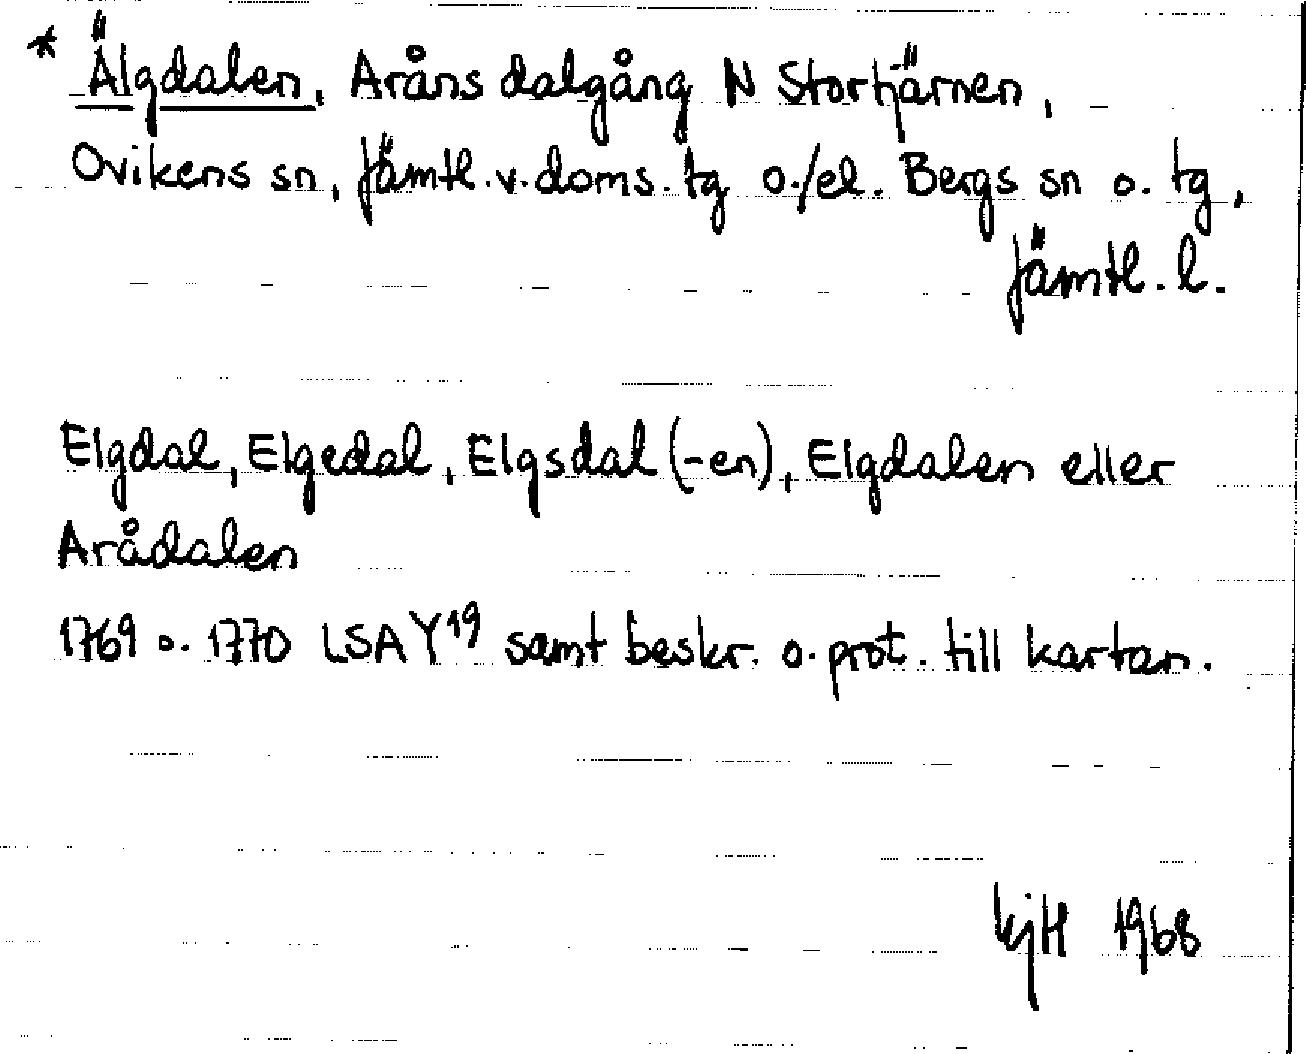 * Älgdalen, Aråns dalgång N Stortjärnen,
Ovikens sn, Jämtl.v.doms.tg o./el. Bergs sn o. tg,
Jämtl. l.
Elgdal, Elgedal, Elgsdal (-en), Elgdalen eller
Arådalen
1769 o. 1770 LSA Y19 samt beskr. o. prot. till kartan.
KjH 1968